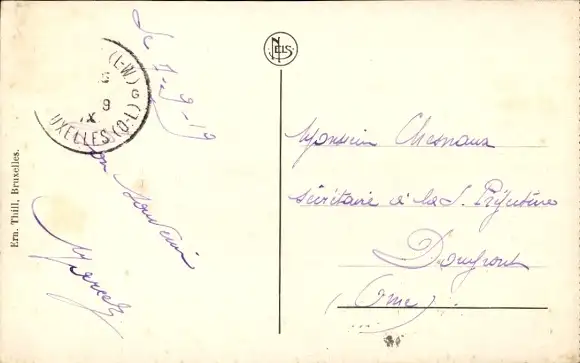 Le 7-9-19
Bon Souvenir
Marcel
(L-W.)
G
9
IX
UXELLES (Q-L)
NELS
Ern. Thill, Bruxelles.
Monsieur Chesnaux
Secrétaire à la S. Préfecture
Domfront
(Orne)